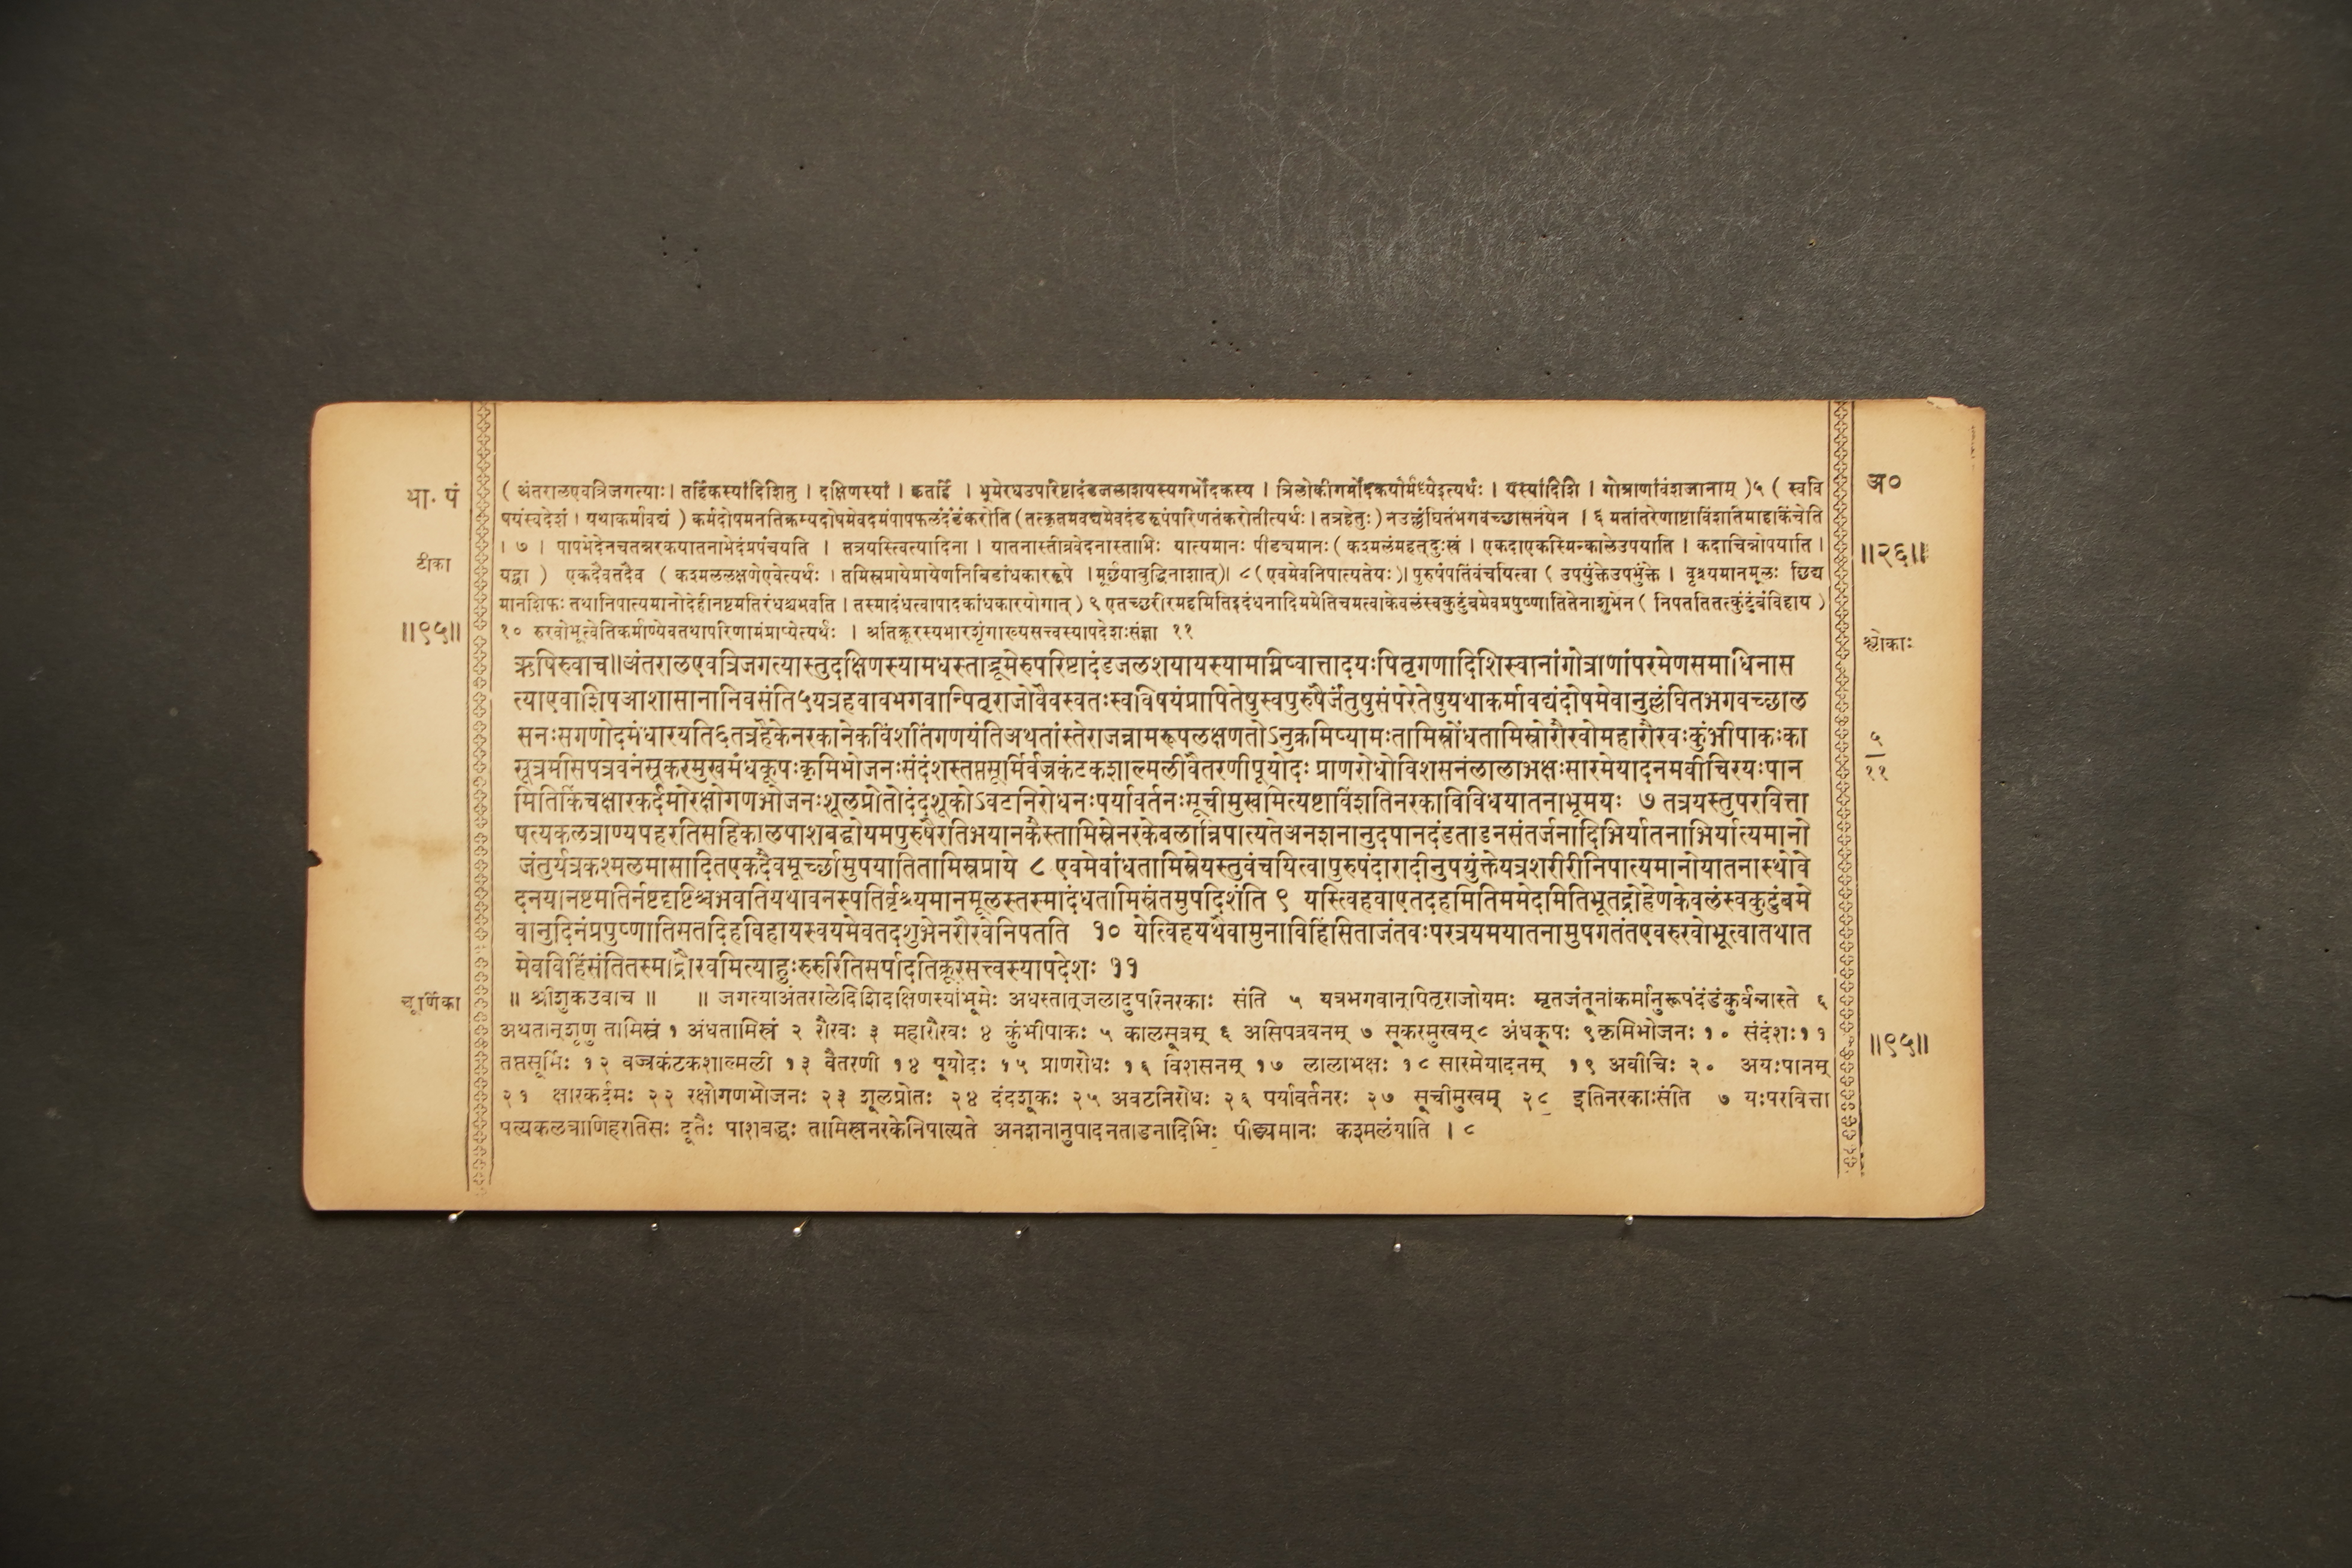 भा. पं
टीका
॥९५॥
(अंतरालएवत्रिजगत्याः। तर्हिकस्यांदिशितु । दक्षिणस्यां । कुतर्हि । भूमेरधउपरिष्टादंडजलाशयस्यगर्भोदकस्य । त्रिलोकीगर्भोदकयोर्मध्येइत्यर्थः । यस्यांदिशि । गोत्राणांवंशजानाम् )५ ( स्ववि
षयंस्वदेशं । यथाकर्मावद्यं ) कर्मदोषमनतिक्रम्यदोषमेवदमंपापफलंदंडंकरोति (तत्कृतमवद्यमेवदंडरूपंपरिणतंकरोतीत्यर्थः । तत्रहेतुः) नउल्लंघितंभगवच्छासनंयेन । ६ मतांतरेणाष्टाविंशतिमाहकिंचेति
। ७ । पापभेदेनचतन्नरकयातनाभेदंप्रपंचयति । तत्रयस्त्वित्यादिना । यातनास्तीव्रवेदनास्ताभिः यात्यमानः पीड्यमानः ( कश्मलंमहत्दुःखं । एकदाएकस्मिन्कालेउपयाति । कदाचिन्नोपयाति ।
यद्वा ) एकदैवतदैव ( कश्मललक्षणेएवेत्यर्थः । तमिस्रप्रायेप्रायेणनिबिडांधकाररूपे । मूर्छयाबुद्धिनाशात्)। ८ (एवमेवनिपात्यतेयः)। पुरुषंपतिंवंचयित्वा ( उपयुंक्तेउपभुंक्ते । वृश्च्यमानमूलः छिद्य
मानशिफः तथानिपात्यमानोदेहीनष्टमतिरंधश्चभवति । तस्मादंधत्वापादकांधकारयोगात् ) ९ एतच्छरीरमहमितिइदंधनादिममेतिचमत्वाकेवलंस्वकुटुंबमेवप्रपुष्णातितेनाशुभेन ( निपततितत्कुंटुंबंविहाय )
१० रुरवोभूत्वेतिकर्माण्येवतथापरिणामंप्राप्येत्यर्थः । अतिक्रूरस्यभारशृंगाख्यसत्त्वस्यापदेशःसंज्ञा ११
ऋषिरुवाच॥अंतरालएवत्रिजगत्यास्तुदक्षिणस्यामधस्ताद्भूमेरुपरिष्टादंडजलशयायस्यामाग्निष्वात्तादयःपितृगणादिशिस्वानांगोत्राणांपरमेणसमाधिनास
त्याएवाशिषआशासानानिवसंति५यत्रहवावभगवान्पितृराजोवैवस्वतःस्वविषयंप्रापितेषुस्वपुरुषैर्जंतुषुसंपरेतेषुयथाकर्मावद्यंदोषमेवानुल्लंघितभगवच्छाल
सनःसगणोदमंधारयति६तत्रहैकेनरकानेकविंशींतंगणयंतिअथतांस्तेराजन्नामरूपलक्षणतोऽनुक्रमिष्यामःतामिस्रोंधतामिस्रोरौरवोमहारौरवःकुंभीपाकःका
सूत्रमसिपत्रवनंसूकरमुखमंधकूपःकृमिभोजनःसंदंशस्तप्तसूर्मिर्वज्रकंटकशाल्मलीवैतरणीपूयोदः प्राणरोधोविशसनंलालाभक्षःसारमेयादनमवीचिरयःपान
मितिकिंचक्षारकर्दमोरक्षोगणभोजनःशूलप्रोतोदंदशूकोऽवटनिरोधनःपर्यावर्तनःसूचीमुखमित्यष्टाविंशतिनरकाविविधयातनाभूमयः ७ तत्रयस्तुपरवित्ता
पत्यकलत्राण्यपहरतिसहिकालपाशबद्धोयमपुरुषैरतिभयानकैस्तामिस्रेनरकेबलान्निपात्यतेअनशनानुदपानदंडताडनसंतर्जनादिभिर्यातनाभिर्यात्यमानो
जंतुर्यत्रकश्मलमासादितएकदैवमूर्च्छामुपयातितामिस्रप्राये ८ एवमेवांधतामिस्रेयस्तुवंचयित्वापुरुषंदारादीनुपयुंक्तेयत्रशरीरीनिपात्यमानोयातनास्थोवे
दनयानष्टमतिर्नष्टदृष्टिश्चभवतियथावनस्पतिर्वृश्च्यमानमूलस्तस्मादंधतामिस्रंतमुपदिशंति ९ यस्त्विहवाएतदहमितिममेदमितिभूतद्रोहेणकेवलंस्वकुटुंबमे
वानुदिनंप्रपुष्णातिसतदिहविहायस्वयमेवतदशुभेनरौरवेनिपतति १० येत्विहयथैवामुनाविहिंसिताजंतवःपरत्रयमयातनामुपगतंतएवरुरवोभूत्वातथात
मेवविहिंसंतितस्माद्रौरवमित्याहुःरुरुरितिसर्पादतिक्रूरसत्त्वस्यापदेशः ११
चूर्णिका
॥ श्रीशुकउवाच ॥ ॥ जगत्याअंतरालेदिशिदक्षिणस्यांभूमेः अधस्तात्जलादुपरिनरकाः संति ५ यत्रभगवान्पितृराजोयमः मृतजंतूनांकर्मानुरूपंदंडंकुर्वन्नास्ते ६
अथतान्शृणु तामिस्रं १ अंधतामिस्रं २ रौरवः ३ महारौरवः ४ कुंभीपाकः ५ कालसूत्रम् ६ असिपत्रवनम् ७ सूकरमुखम्८ अंधकूपः ९कृमिभोजनः १० संदंशः११
तप्तसूर्मिः १२ वज्रकंटकशाल्मली १३ वैतरणी १४ पूयोदः १५ प्राणरोधः १६ विशसनम् १७ लालाभक्षः १८ सारमेयादनम् १९ अवीचिः २० अयःपानम्
२१ क्षारकर्दमः २२ रक्षोगणभोजनः २३ शूलप्रोतः २४ दंदशूकः २५ अवटनिरोधः २६ पर्यावर्तनरः २७ सूचीमुखम् २८ इतिनरकाःसंति ७ यःपरवित्ता
पत्यकलत्राणिहरतिसः दूतैः पाशबद्धः तामिस्रनरकेनिपात्यते अनशनानुपादनताडनादिभिः पीड्यमानः कश्मलंयाति । ८
अ०
॥२६॥
श्लोकाः
५
११
॥९५॥